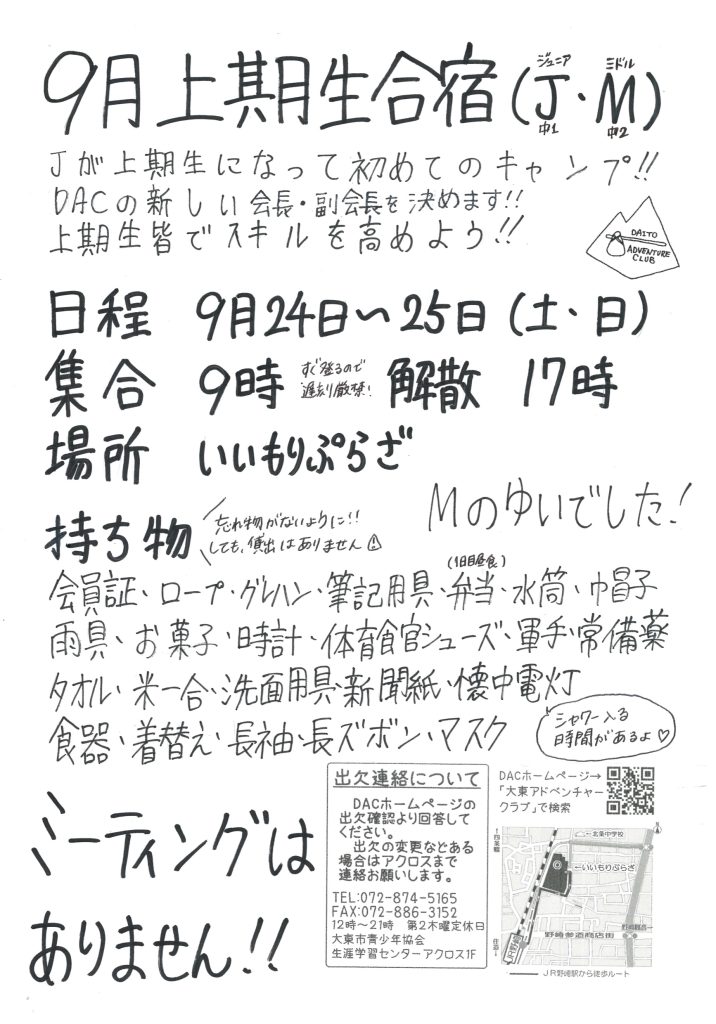 9月上期生合宿(J・M)
ジュニア ミドル
中1 中2
Jが上期生になって初めてのキャンプ!!
DACの新しい会長・副会長を決めます!!
上期生皆でスキルを高めよう!!
DAITO
ADVENTURE
CLUB
日程 9月24日〜25日(土・日)
集合 9時 すぐ登るので 遅刻厳禁! 解散 17時
場所 いいもりぷらざ
Mのゆいでした!
持ち物 忘れ物がないように!!
しても、貸出はありません
(1日目昼食)
会員証・ロープ・グレハン・筆記用具・弁当・水筒・巾帽子
雨具・お菓子・時計・体育館シューズ・軍手・常備薬
タオル・米一合・洗面用具・新聞紙・懐中電灯
食器・着替え・長袖・長ズボン・マスク
シャワー入る
時間があるよ♡
ミーティングは
ありません!!
出欠連絡について
DACホームページの
出欠確認より回答して
ください。
出欠の変更などある
場合はアクロスまで
連絡お願いします。
TEL:072-874-5165
FAX:072-886-3152
12時〜21時 第2木曜定休日
大東市青少年協会
生涯学習センターアクロス1F
DACホームページ→
「大東アドベンチャー
クラブ」で検索
↑四条畷
←北条中学校
←いいもりぷらざ
野崎参道商店街
JR野崎
住道↓
JR野崎駅から徒歩ルート